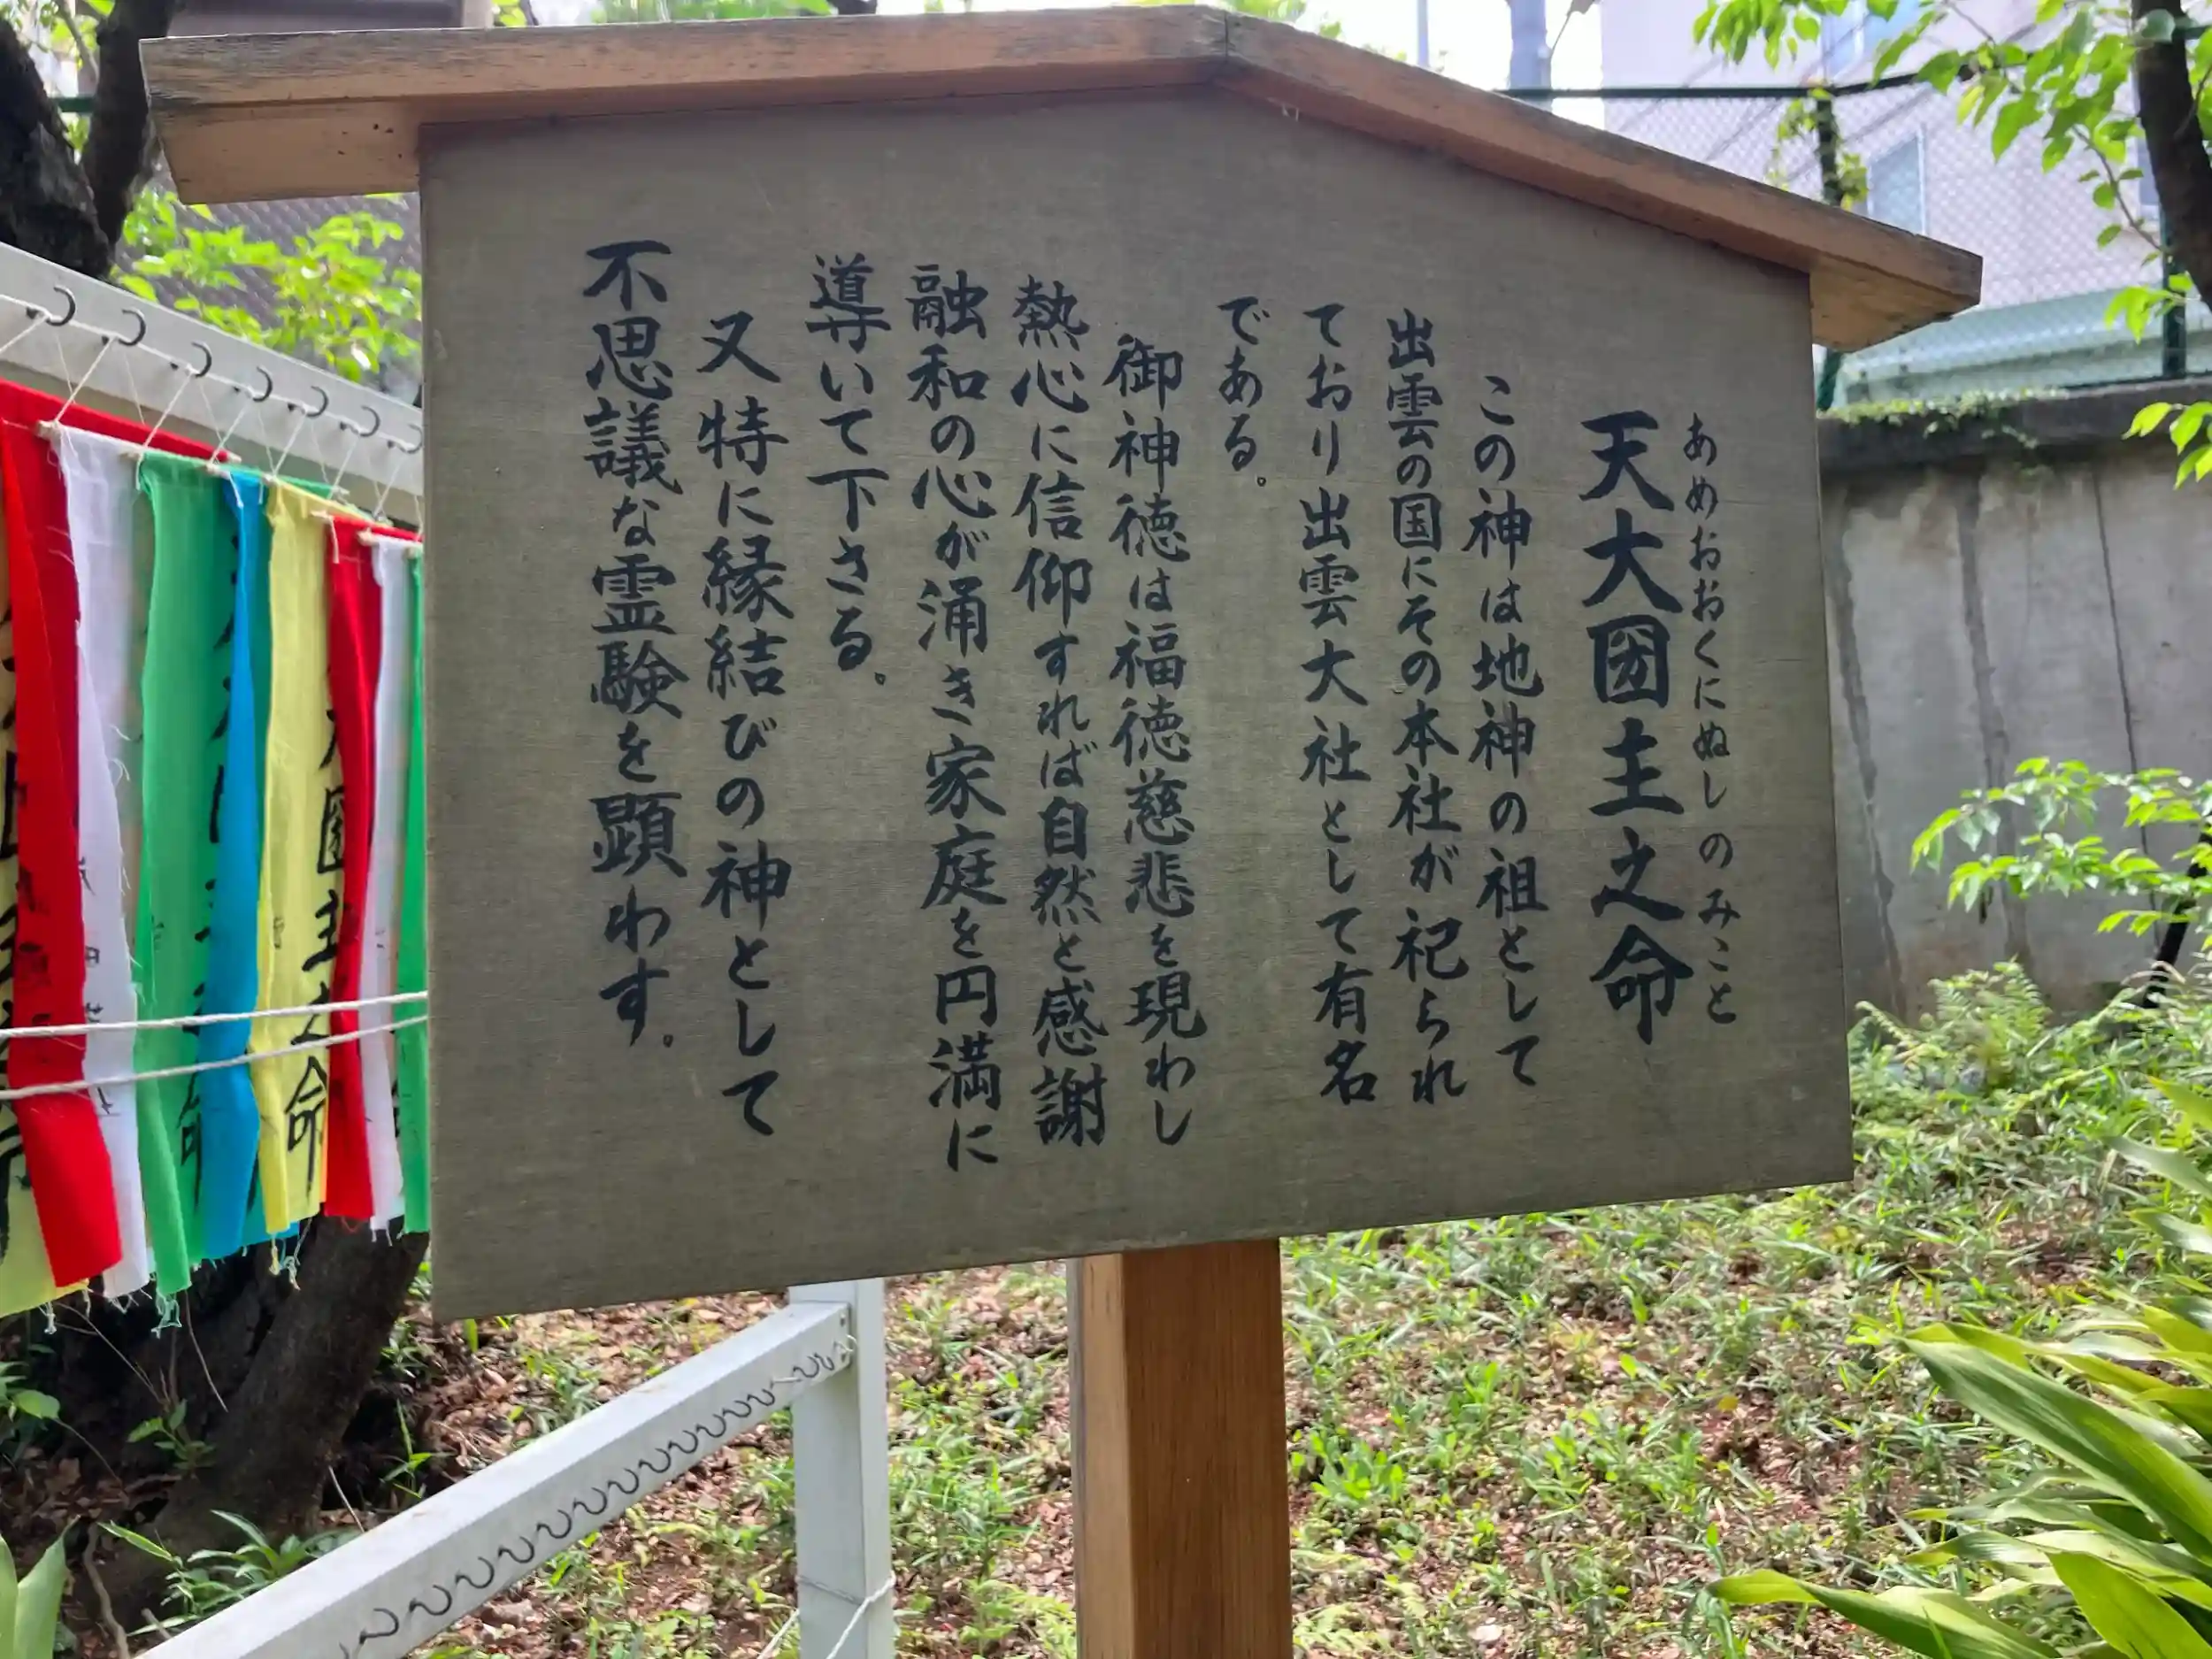 あめおおくにぬしのみこと
天大国主之命
この神は地神の祖として
出雲の国にその本社が祀られ
ており出雲大社として有名
である。
御神徳は福徳慈悲を現わし
熱心に信仰すれば自然と感謝
融和の心が涌き家庭を円満に
導いて下さる。
又特に縁結びの神として
不思議な霊験を顕わす。